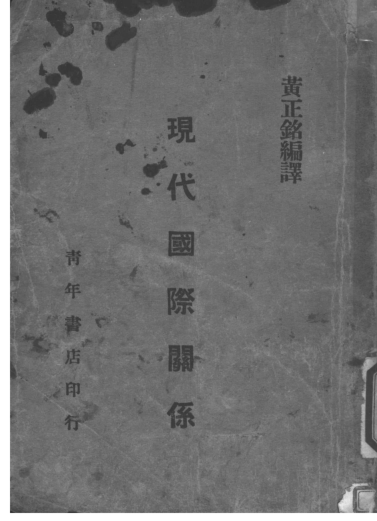 黃正銘編譯
現代國際關係
青年書店印行